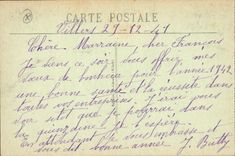 CARTE POSTALE
Villers 29-12-41
Chère Marraine, cher François
Je viens ce soir vous offrir mes
vœux de bonheur pour l'année 1942
une bonne santé et la réussite dans
toutes vos entreprises. J'irai vous
voir sitôt que je pourrai dans
la quinzaine je l'espère.
En attendant je vous embrasse et
vous dit bonne année. J.